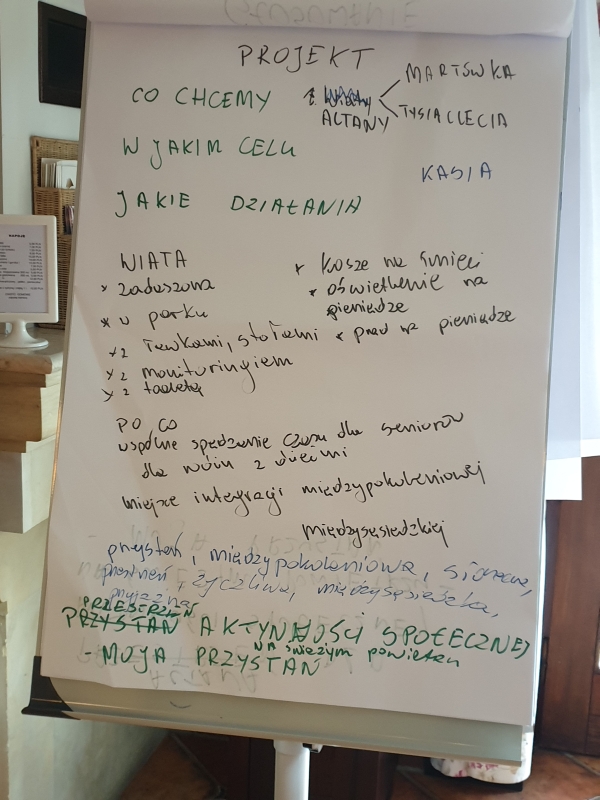 PROJEKT
CO CHCEMY
ALTANY
MARTÓWKA
TYSIĄCLECIA
W JAKIM CELU
KASIA
JAKIE DZIAŁANIA
WIATA
* zadaszona
* w parku
* z ławkami, stołami
* z monitoringiem
* z toaletą
* kosze na śmieci
* oświetlenie na
pieniądze
* prąd na pieniądze
PO CO
wspólne spędzanie czasu dla seniorów
dla rodzin z dziećmi
miejsce integracji międzypokoleniowej
międzysąsiedzkiej
przystań, międzypokoleniowa,
przestrzeń, życzliwa, międzysąsiedzka,
przyjazna
PRZESTRZEŃ
PRZYSTAŃ AKTYWNOŚCI SPOŁECZNEJ
NA świeżym powietrzu
- MOJA PRZYSTAŃ